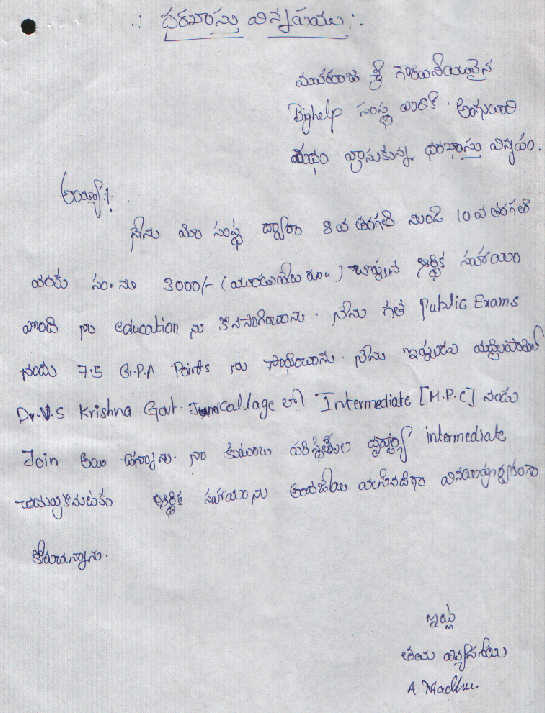 దరఖాస్తు విన్నపములు
మహారాజ శ్రీ గౌరవనీయులైన
Bighelp సంస్థ వారికి
వ్రాసుకున్న దరఖాస్తు విన్నపం.
అయ్యా!
నేను మీ సంస్థ ద్వారా 8 వ తరగతి నుండి 10 వ తరగతి
వరకు సం. నకు 3000/- ఆర్థిక సహాయం
పొంది నా education ను కొనసాగించాను. నేను గత Public Exams
నందు 7.5 G.P.A Points ను సాధించాను. నేను ఇప్పుడు
Dr. V.S Krishna Govt. Collage లో Intermediate [M.P.C] నందు
Join అయి ఉన్నాను. నా కుటుంబ పరిస్థితుల దృష్ట్యా intermediate
చదువుకొనుటకు ఆర్థిక సహాయంను అందజేయ వలసినదిగా వినయపూర్వకంగా
కోరుచున్నాను.
ఇట్లు
తమ విధేయుడు
A. Madhu.